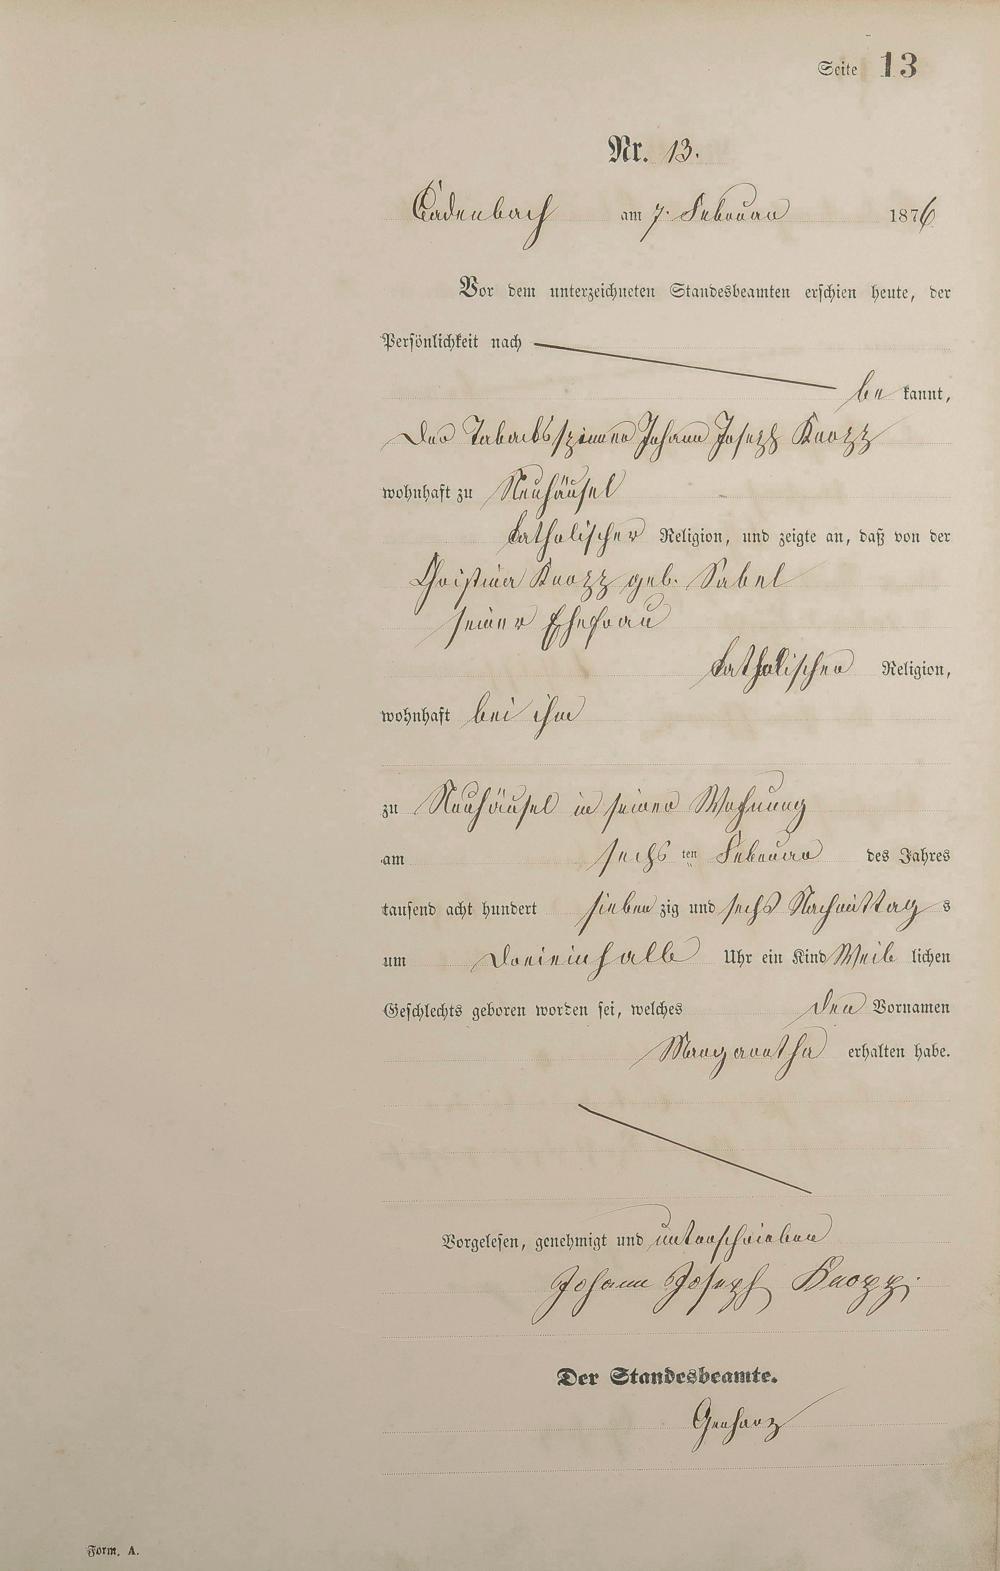 Seite 13
Nr. 13.
Cadenbach am 7. Februar 1876
Vor dem unterzeichneten Standesbeamten erschien heute, der
Persönlichkeit nach
be kannt,
der Tabacksspinner Johann Joseph Knopp
wohnhaft zu Neuhäusel
katholischer Religion, und zeigte an, daß von der
Christina Knopp geb. Sabel
seiner Ehefrau
katholischer Religion,
wohnhaft bei ihm
zu Neuhäusel in seiner Wohnung
am sechs ten Februar des Jahres
tausend acht hundert sieben zig und sechs Nachmittag s
um dreieinhalb Uhr ein Kind Weib lichen
Geschlechts geboren worden sei, welches den Vornamen
Margaretha erhalten habe.
Vorgelesen, genehmigt und unterschrieben
Johann Joseph Knopp.
Der Standesbeamte.
Gerharz
Form. A.